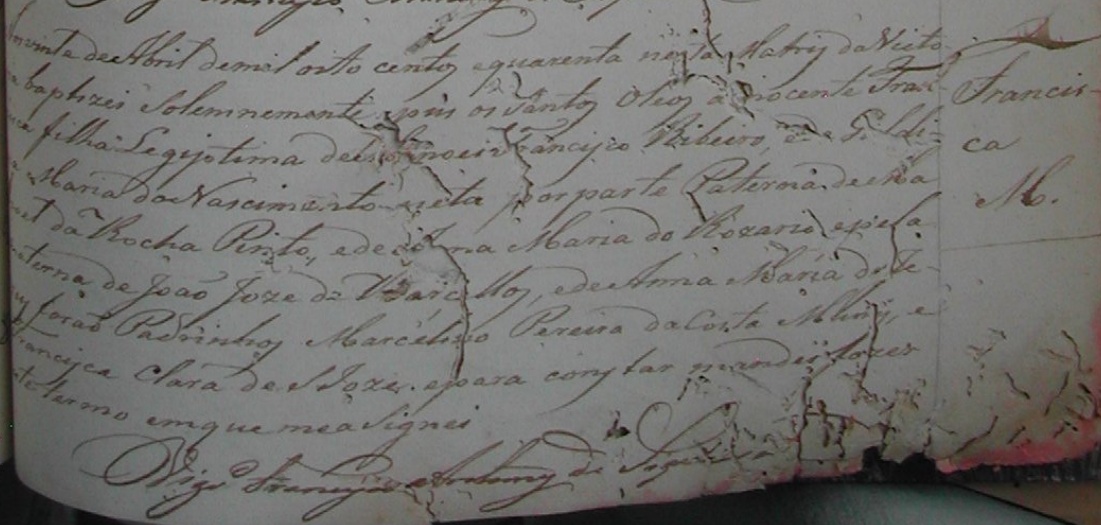 vinte de Abril de mil oito centos e quarenta nesta Matriz da Victo-
baptizei Solemnemente, e pus os Santos Oleos a innocente Fran-
filha Legijtima de Francisco Ribeiro, e de
Maria do Nascimento neta por parte Paterna de
da Rocha Pinto, e de Anna Maria do Rozario, e pela
terna de João Joze de Barcellos, e de Anna Maria de Je-
forão Padrinhos Marcelino Pereira da Costa Muniz, e
Francisca Clara de S. Joze. e para constar mandei fazer
termo em que me aSignei
Vigo. Francisco Antunes de Siqueira
Francis-
ca
M.